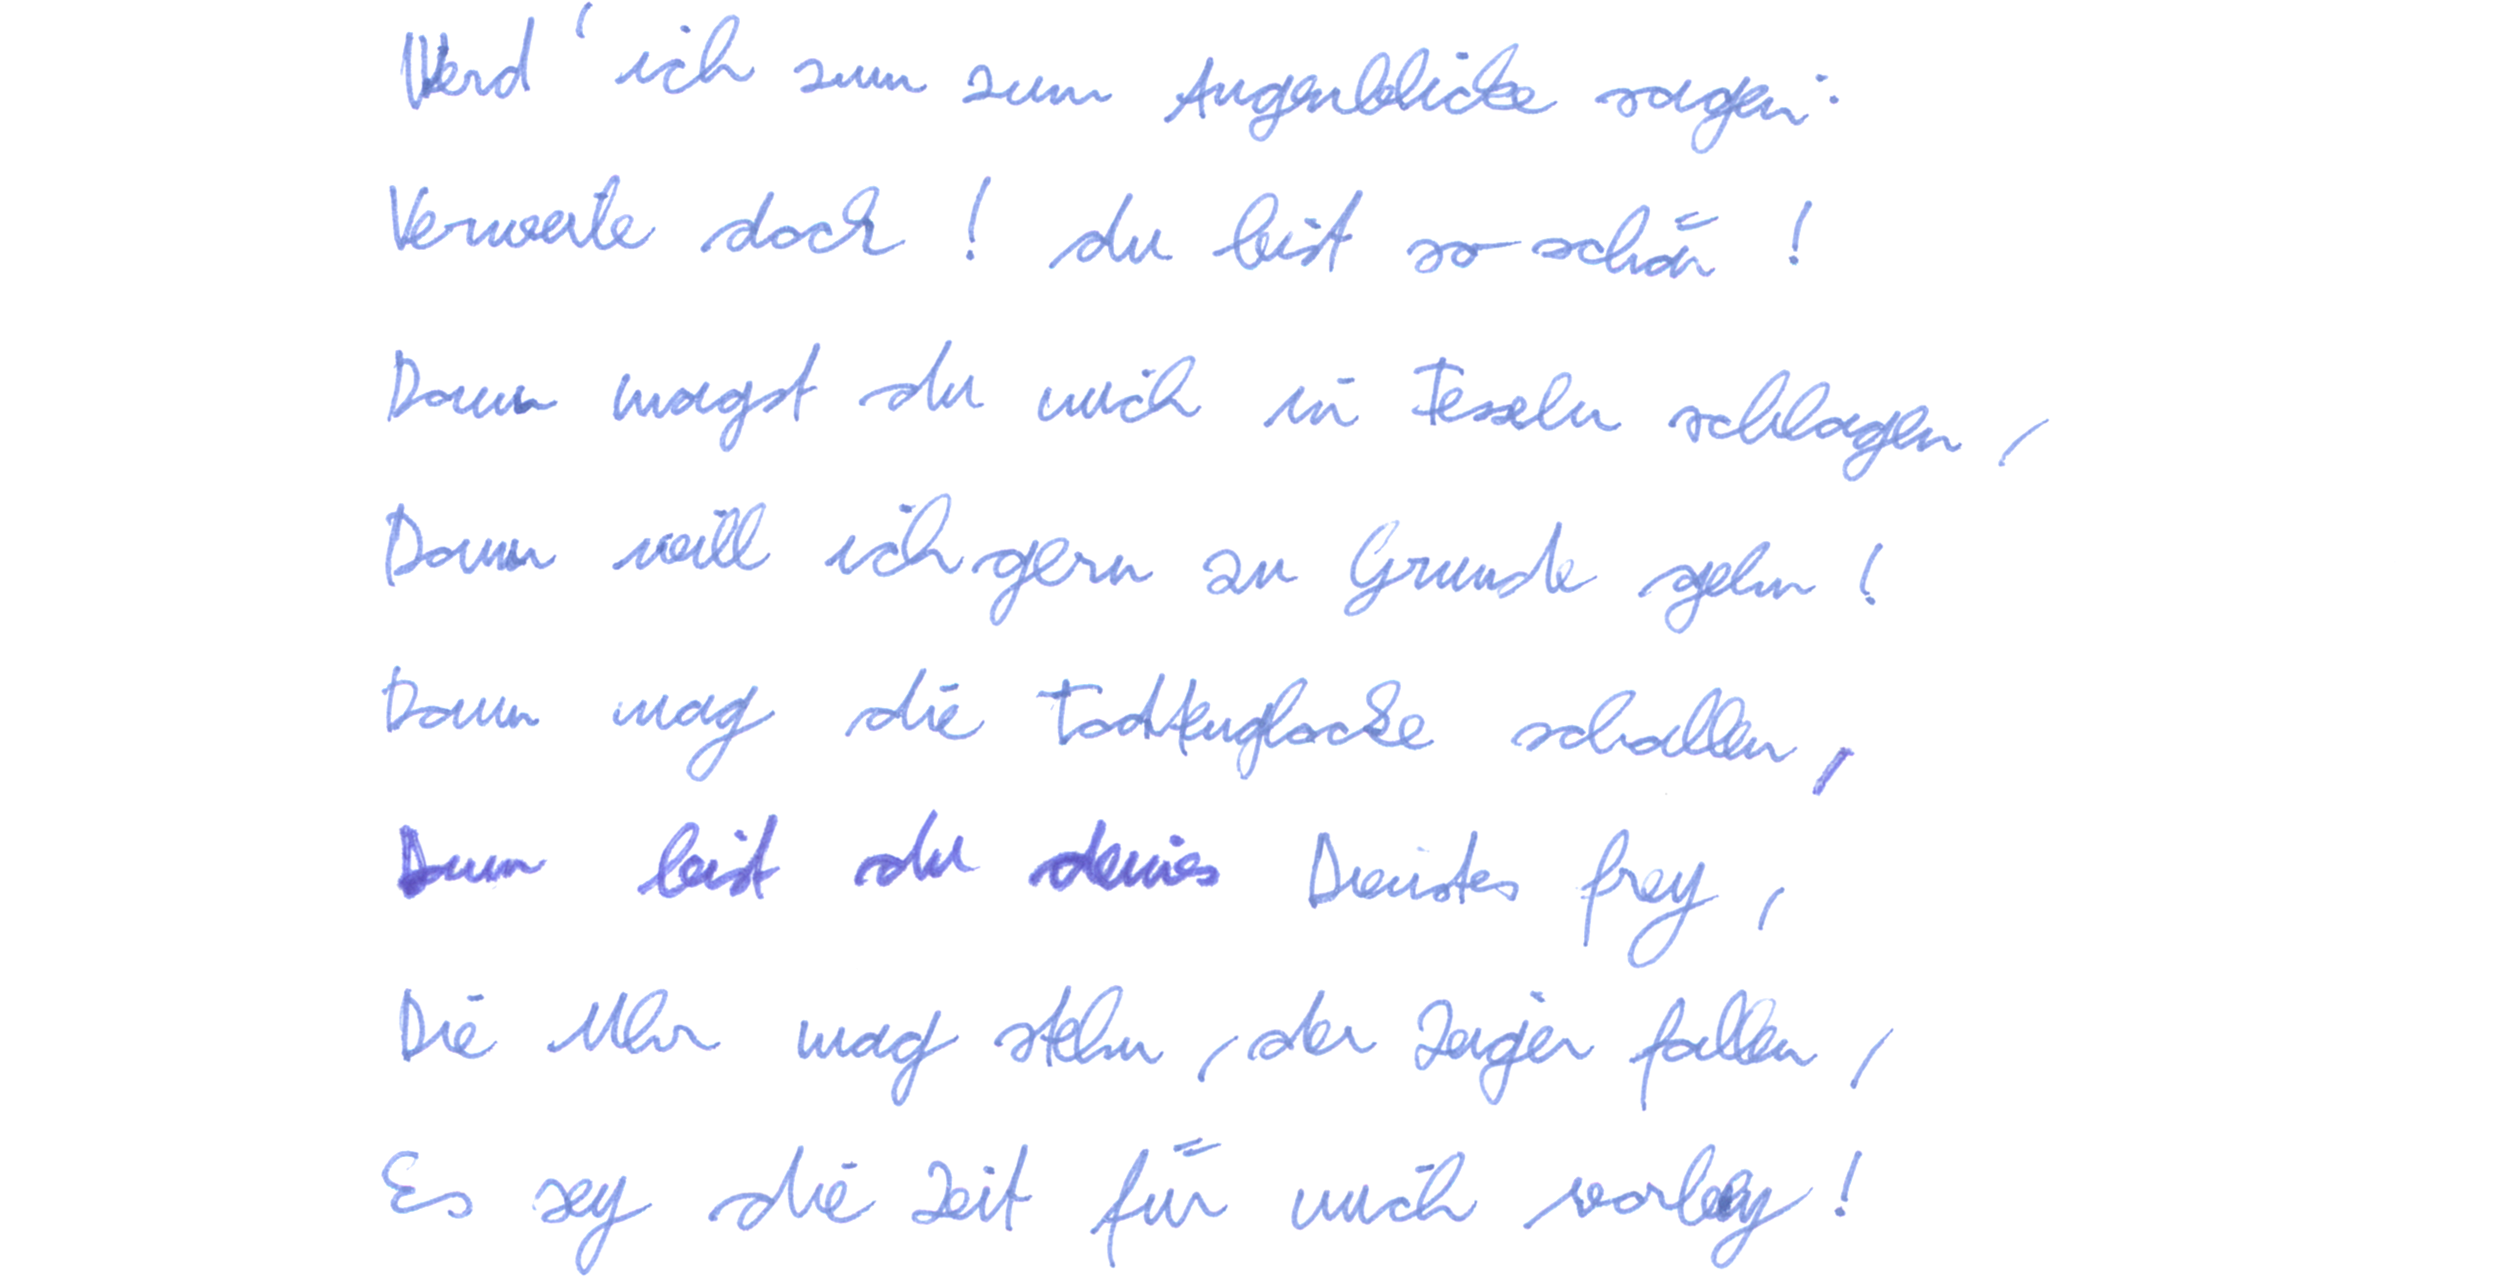 Werd' ich zum zum Augenblicke sagen:
Verweile doch! du bist so schön!
Dann magst du mich in Fesseln schlagen,
Dann will ich gern zu Grunde gehn!
Dann mag die Todtenglocke schallen,
Dann bist du deines Dienstes frey,
Die Uhr mag stehn, der Zeiger fallen,
Es sey die Zeit für mich vorbey!